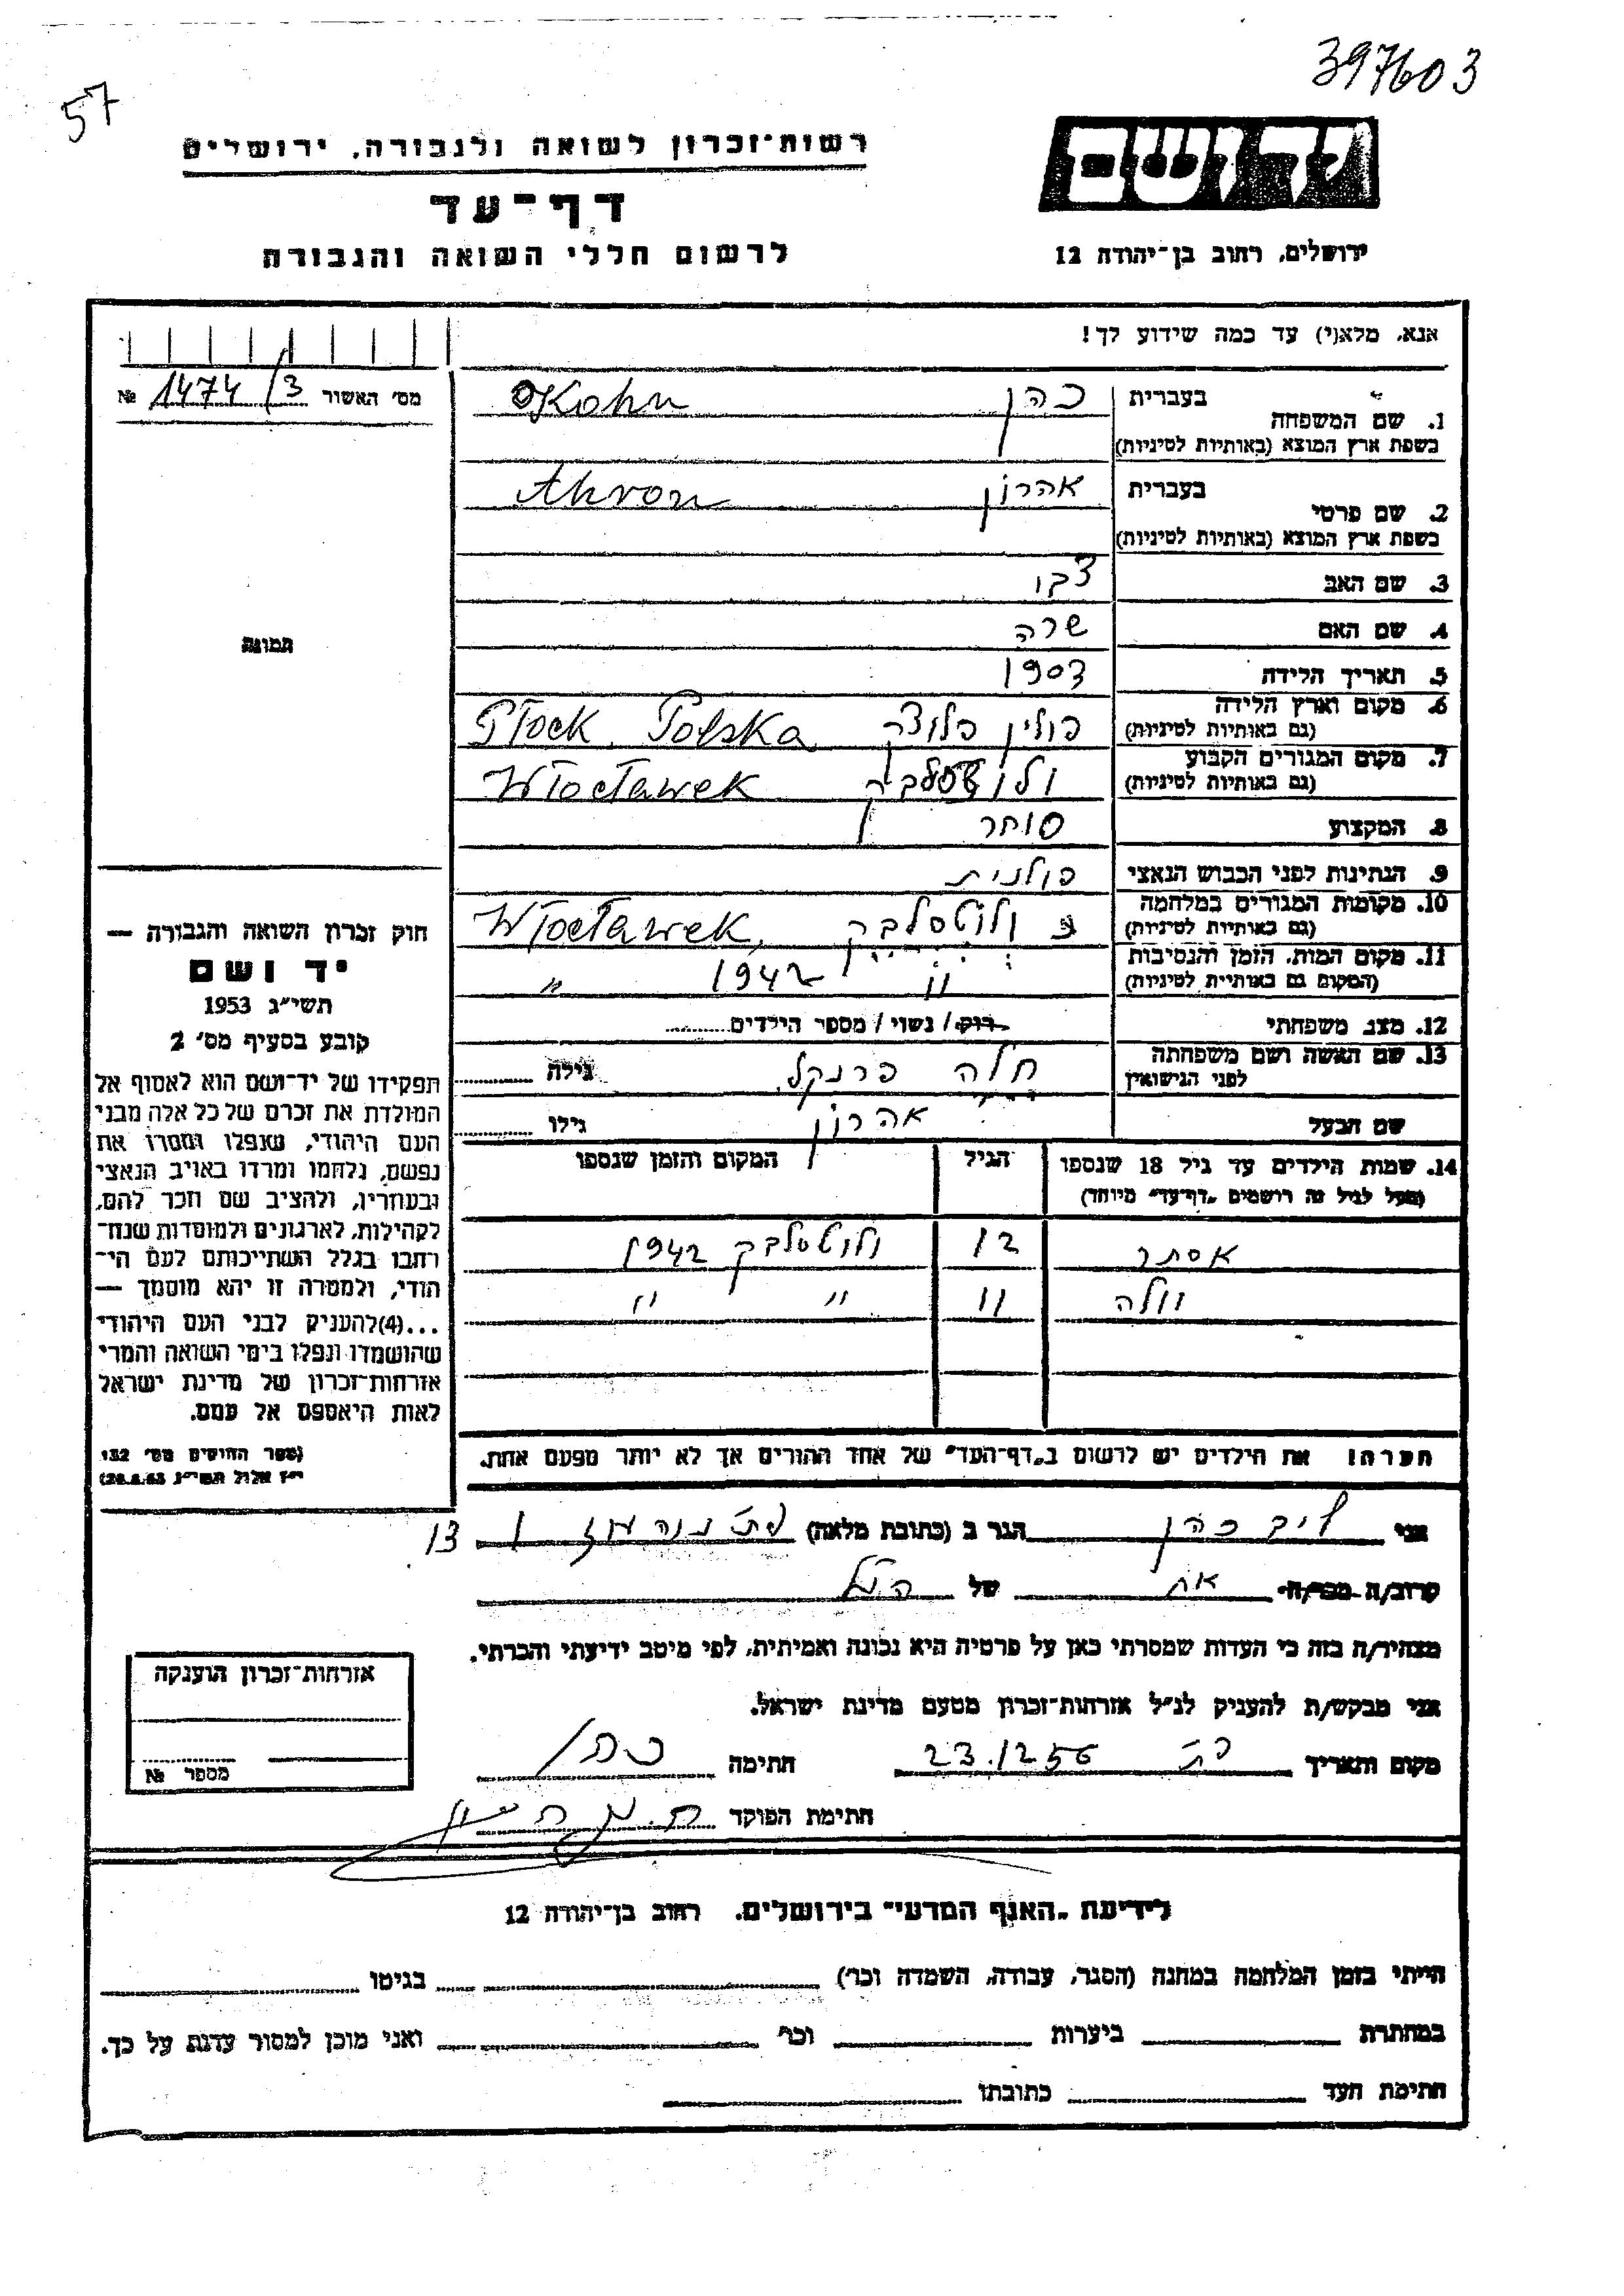 397603
57
יד ושם
רשות־זכרון לשואה ולגבורה, ירושלים
דף־עד
לרשום חללי השואה והגבורה
ירושלים, רחוב בן־יהודה 12
אנא, מלא(י) עד כמה שידוע לך!
מס׳ האשור 1474/3 №
תמונה
חוק זכרון השואה והגבורה —
יד ושם
תשי״ג 1953
קובע בסעיף מס׳ 2
תפקידו של יד־ושם הוא לאסוף אל
המולדת את זכרם של כל אלה מבני
העם היהודי, שנפלו ומסרו את
נפשם, נלחמו ומרדו באויב הנאצי
ובעוזריו, ולהציב שם וזכר להם,
לקהילות, לארגונים ולמוסדות שנח־
רחבו בגלל השתייכותם לעם הי־
הודי, ולמטרה זו יהא מוסמך —
...(4)להעניק לבני העם היהודי
שהושמדו ונפלו בימי השואה והמרי
אזרחות־זכרון של מדינת ישראל
לאות היאספם אל עמם.
(ספר החוקים מס׳ 132
י״ז אלול תשי״ג 28.8.53)
1. שם המשפחה בעברית כהן Kohn
בשפת ארץ המוצא (באותיות לטיניות)
2. שם פרטי בעברית אהרון Ahron
בשפת ארץ המוצא (באותיות לטיניות)
3. שם האב
4. שם האם שרה
5. תאריך הלידה 1903
6. מקום וארץ הלידה פולין פלוצק Płock, Polska
(גם באותיות לטיניות)
7. מקום המגורים הקבוע Włocławek
(גם באותיות לטיניות)
8. המקצוע סוחר
9. הנתינות לפני הכבוש הנאצי פולנית
10. מקומות המגורים במלחמה ולוצסלבק Włocławek,
(גם באותיות לטיניות)
11. מקום המות, הזמן והנסיבות " 1942 "
(המקום גם באותיות לטיניות)
12. מצב משפחתי רוק / נשוי / מספר הילדים
13. שם האשה ושם משפחתה חלה פרנקל גילה
לפני הנישואין
שם הבעל אהרון גילו
14. שמות הילדים עד גיל 18 שנספו הגיל המקום והזמן שנספו
(מעל לגיל זה רושמים „דף־עד״ מיוחד)
אסתר 12 ולוצסלבק 1942
11 " "
הערה! את הילדים יש לרשום ב„דף־העד״ של אחד ההורים אך לא יותר מפעם אחת.
אני ליב כהן הגר ב (כתובת מלאה) 13
קרוב/ה מכר/ה אח של הנ״ל
מצהיר/ה בזה כי העדות שמסרתי כאן על פרטיה היא נכונה ואמיתית, לפי מיטב ידיעתי והכרתי.
אני מבקש/ת להעניק לנ״ל אזרחות־זכרון מטעם מדינת ישראל.
מקום ותאריך 23.12.56 חתימה כהן
חתימת הפוקד
אזרחות־זכרון הוענקה
מספר №
לידיעת „האגף המדעי״ בירושלים, רחוב בן־יהודה 12
הייתי בזמן המלחמה במחנה (הסגר, עבודה, השמדה וכו׳) בגיטו
במחתרת ביערות וכו׳ ואני מוכן למסור עדות על כך.
חתימת העד כתובתו